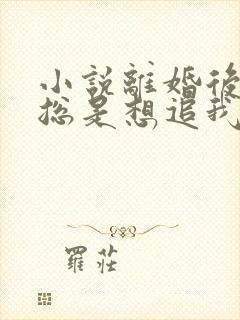 小說離婚後
總是想追我
羅莊